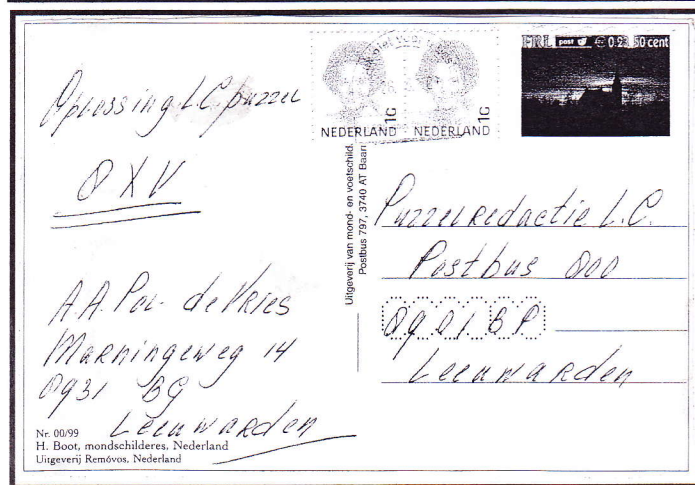 Oplossing L.C. puzzel
O X V
A.A. Pol- de Vries
Marningeweg 14
0931 BG
Leeuwarden
Nr. 00/99
H. Boot, mondschilderes, Nederland
Uitgeverij Removos, Nederland
Uitgeverij van mond- en voetschild.
Postbus 797, 3740 AT Baarn
NEDERLAND 1G
NEDERLAND 1G
FRL post € 0.23 50 cent
Puzzelredactie L.C.
Postbus 000
0901 BP
Leeuwarden